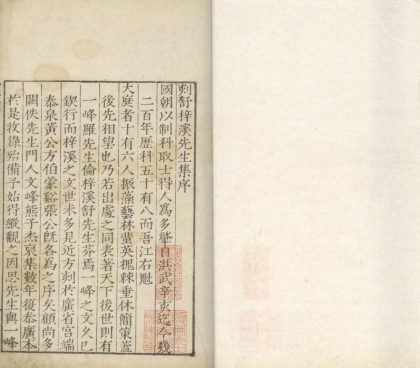 刻舒梓溪先生集序
國朝以制科取士得人爲多肇自洪武辛亥迄今幾
二百年歷科五十有八而吾江右魁
大庭者十有六人振藻藝林蜚英槐棘垂休簡策蓋
後先相望也乃若出處之同表著天下後世則有
一峰羅先生倫梓溪舒先生芬焉一峰之文久已
鋟行而梓溪之文世未多見近方刻於廣省宫端
泰泉黄公方伯蒙谿張公旣各爲之序矣顧尚多
闕佚先生門人文峰熊子杰裒集數年復叅廣本
於是收錄始備予始得縱觀之因思先生與一峰